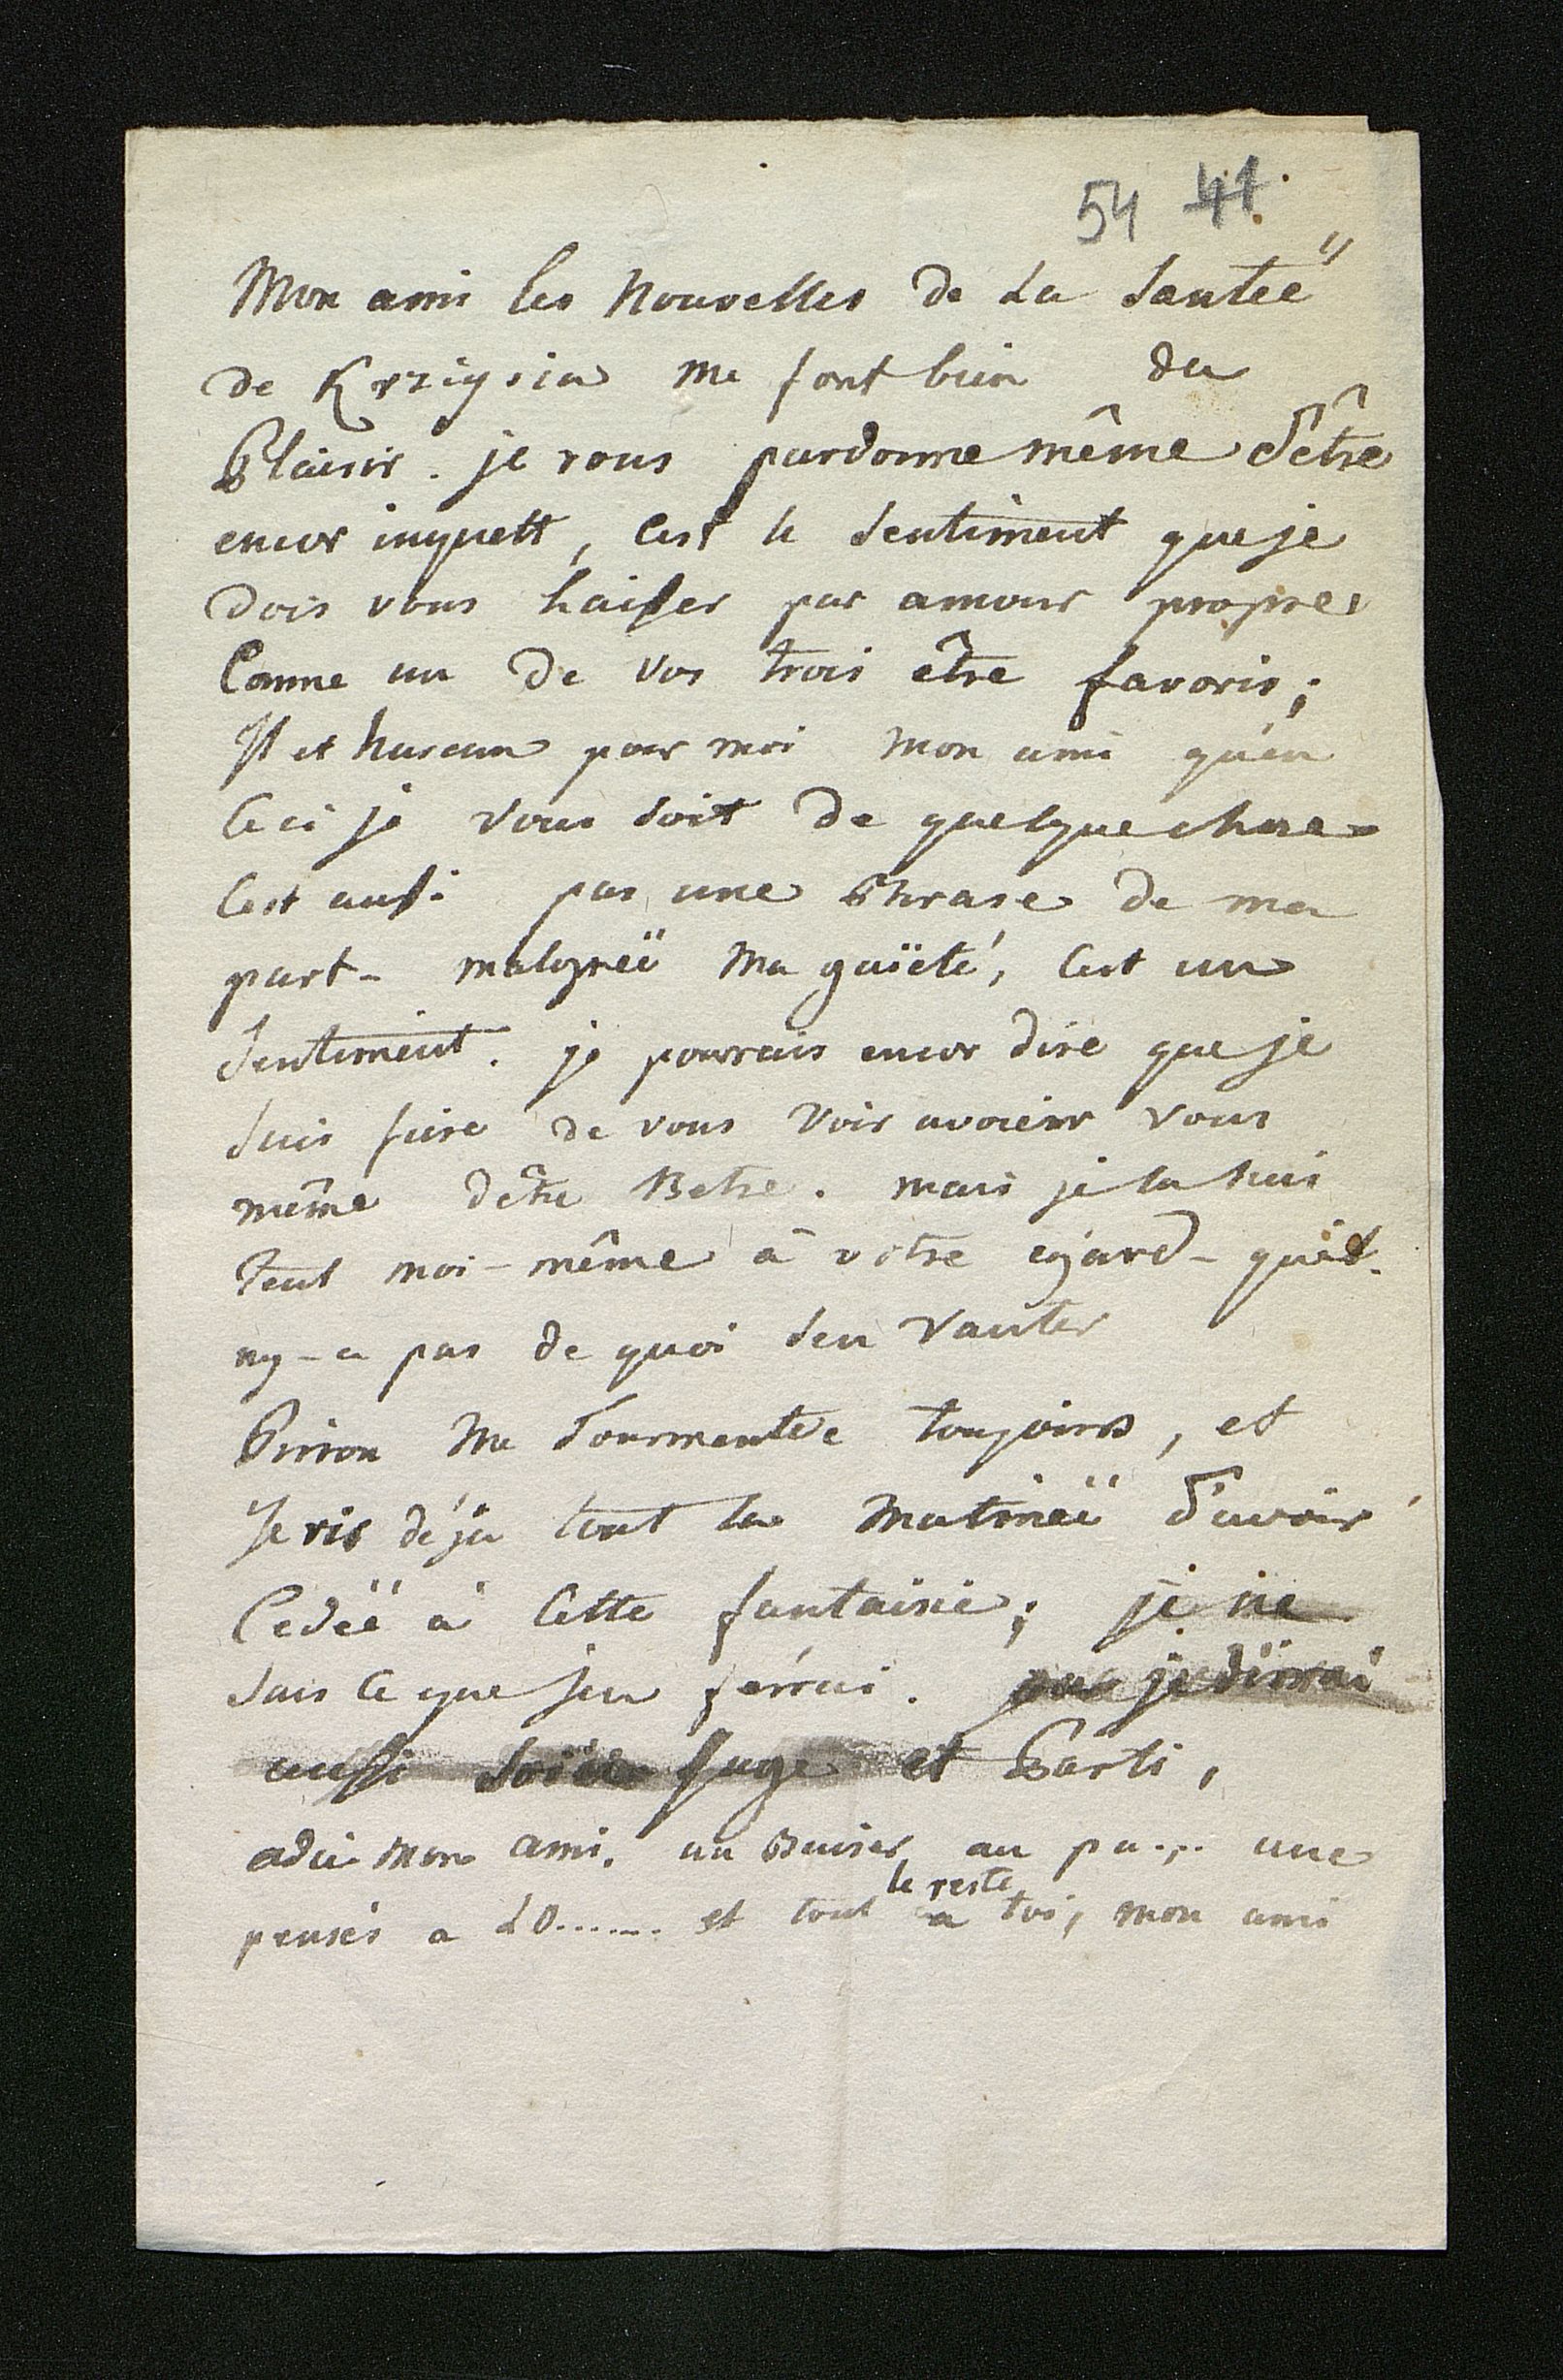 54 41.
Mon ami les Nouvelles de La Santeë
de Krziysia me font bien du
Plaisir. je vous pardonne même d'être
encor inquett, Cest le Sentiment que je
dois vous laisser par amour propre
Comme un de vos trois être favoris;
Il et heureux pour moi Mon ami qu'en
Ceci je vous soit de quelque chose
Cest aussi pas une Phrase de ma
part - malgreë Ma gaïeté, Cest un
Sentiment. je pourrais encor dire que je
Suis fiere de vous voir avoiër vous
même d'être Betre. mais je la suis
tent moi-même à votre egard - qu'il
ny-a pas de quoi Sen Vanter
Pirron Me Tourmente toujours, et
Je ris déja tout la Matineë d'avoir
Cedeë à Cette fantaisie; je ne
Sais Ce que jen ferrai. je dirrai
aussi Sage et Parti,
adie mon ami. un Baiser au pa... une
pensés a LO...... et tout le reste a toi, mon ami